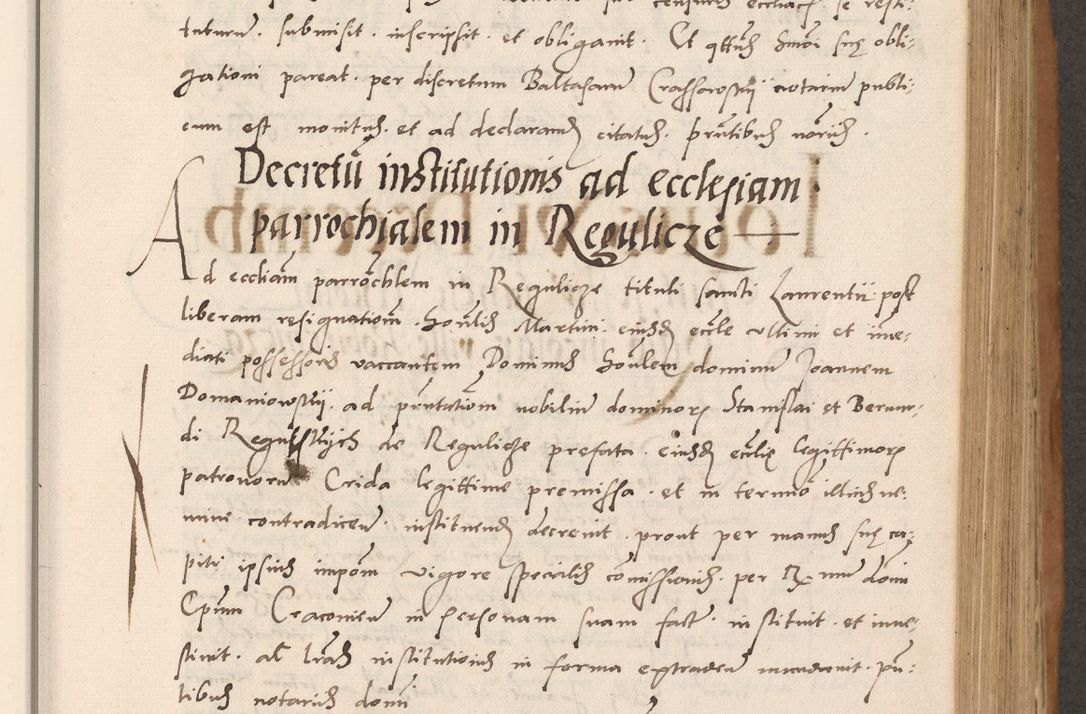 tuturum submisit inscripsit et obligavit Et quatenus suę obli-
gationi pareat per discretum Baltasarum Crassowskij notarium publi-
cum est monitus et ad declarand citatus pntibus
Decretū institutionis ad ecclesiam
parrochialem in Regulicze
Ad eccliam parrochlem in Regulicze tituli sancti Laurentii post
liberam resignationem Honlis Martini eiusd eccle ultimi et imme-
diati possessoris vaccantem Dominus Honlem dominum Joannem
Domaniowskij ad pntationem nobilium dominorum Stanislai et Bernar-
di Regulskijch de Regulicze prefata eiusd ecclię legittimorum
patronorum Crida legittime premissa et in termino illius ne-
mine contradicen instituend decrevit prout per manus suę ca-
piti ipsius impom vigore specialis comissionis per R-mum dominum
Epum Cracovien in personam suam fact instituit et inve-
stivit ac lras institutionis in forma extraden mandavit pn-
tibus notariis domi